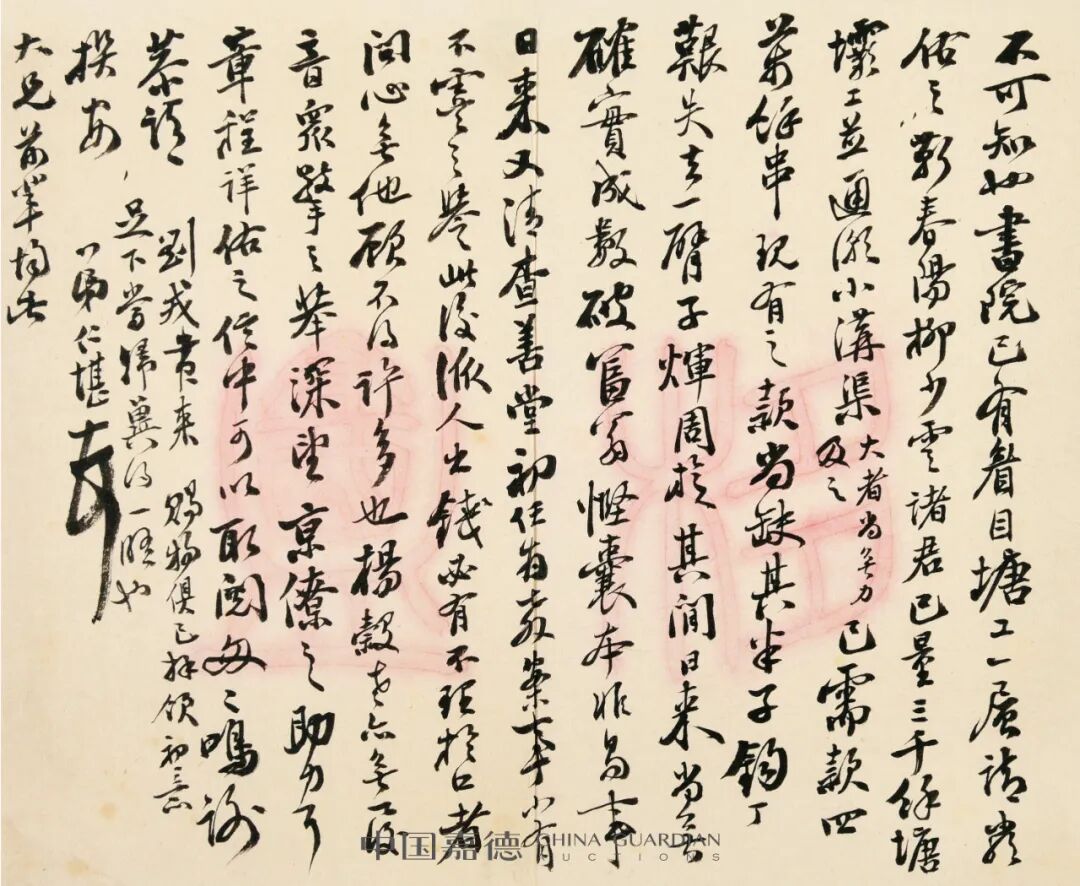 不可知也書院已有眉目塘工一層請嚴
佑之靳春陽柳少雲諸君已量三千餘塘
壩工並通濬小溝渠大者尚無力及之已需款四
萬餘串現有之款尚缺其半子鈞丁
艱失去一臂子輝周旋其間日來尚無
確實成數破富翁慳囊本非易事
日來又清查善堂初任有教案事小有
不虞之譽此後派人出錢必有不理於口者
問心無他顧不得許多也楊穀老亦無一復
音眾擎之舉深望京僚之助力耳
章程詳佑之信中可以取閱匆匆鳴謝
恭請
撰安
小弟仁堪
大兄前輩均此
劉戎貴來 賜物俱已拜領初意
足下當歸冀得一晤也
中国嘉德 CHINA GUARDIAN
AUCTIONS